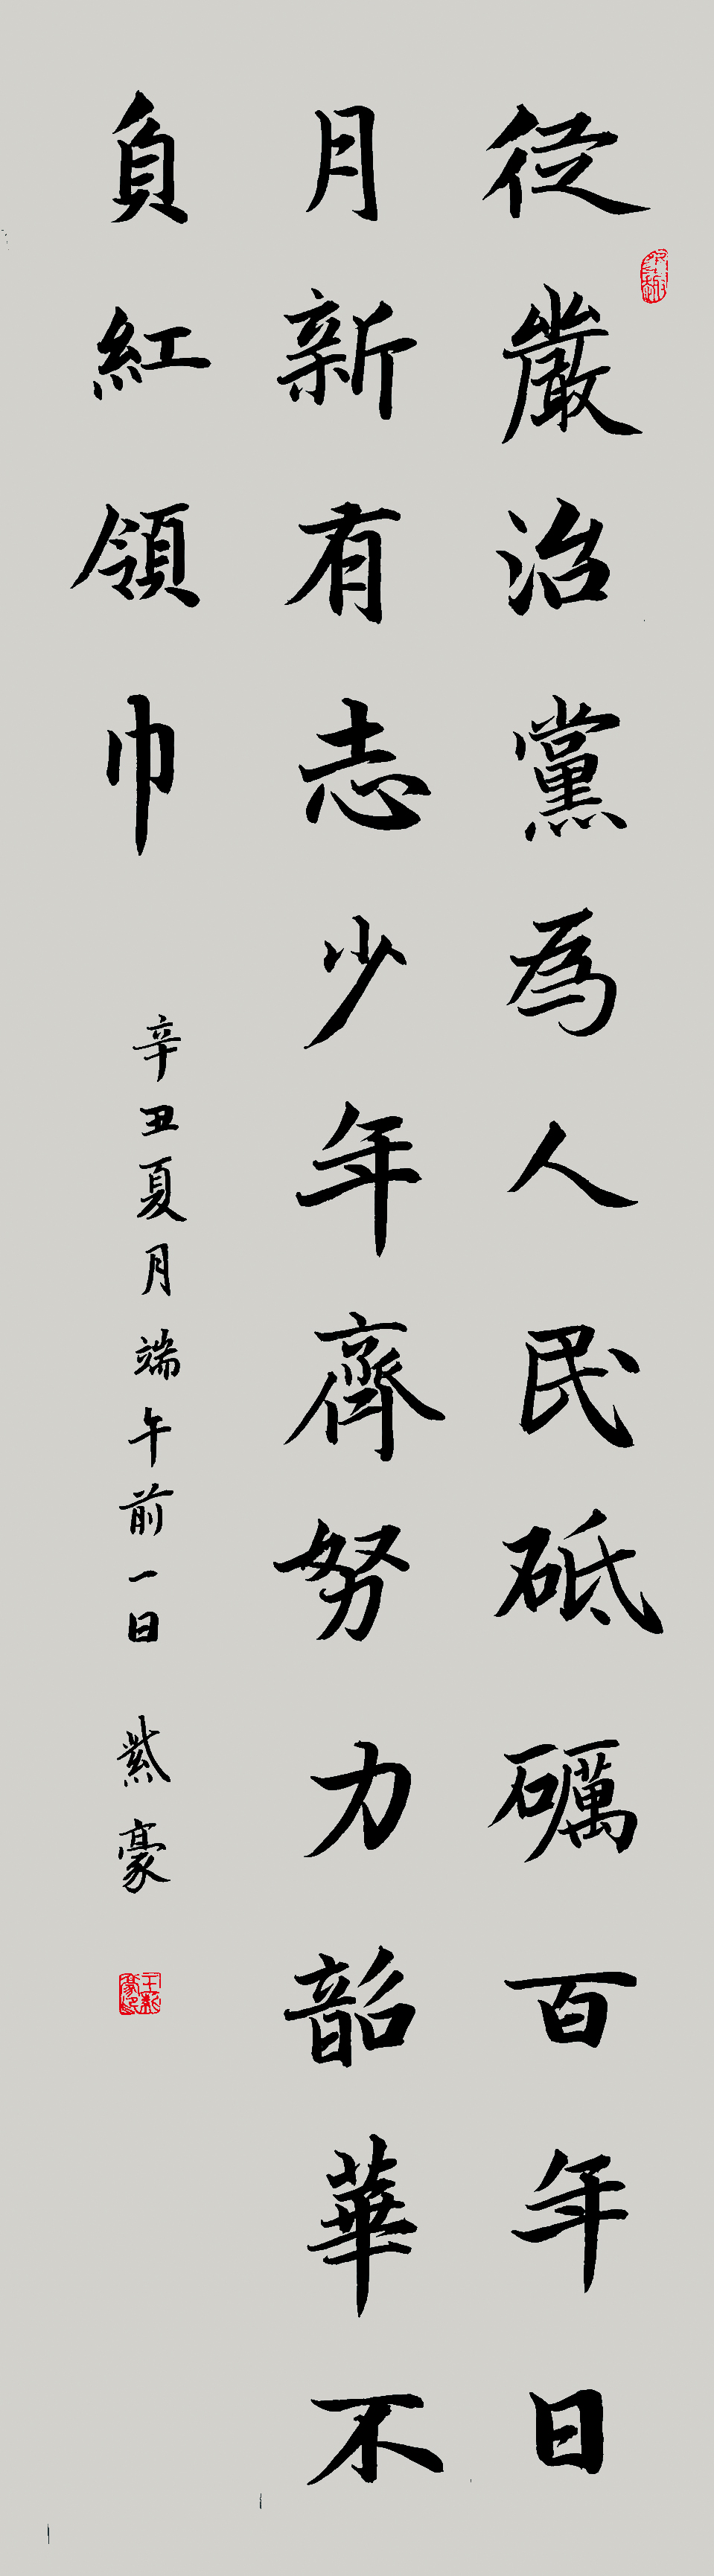 從嚴治黨為人民砥礪百年日
月新有志少年齊努力韶華不
負紅領巾
辛丑夏月端午前一日 紫豪